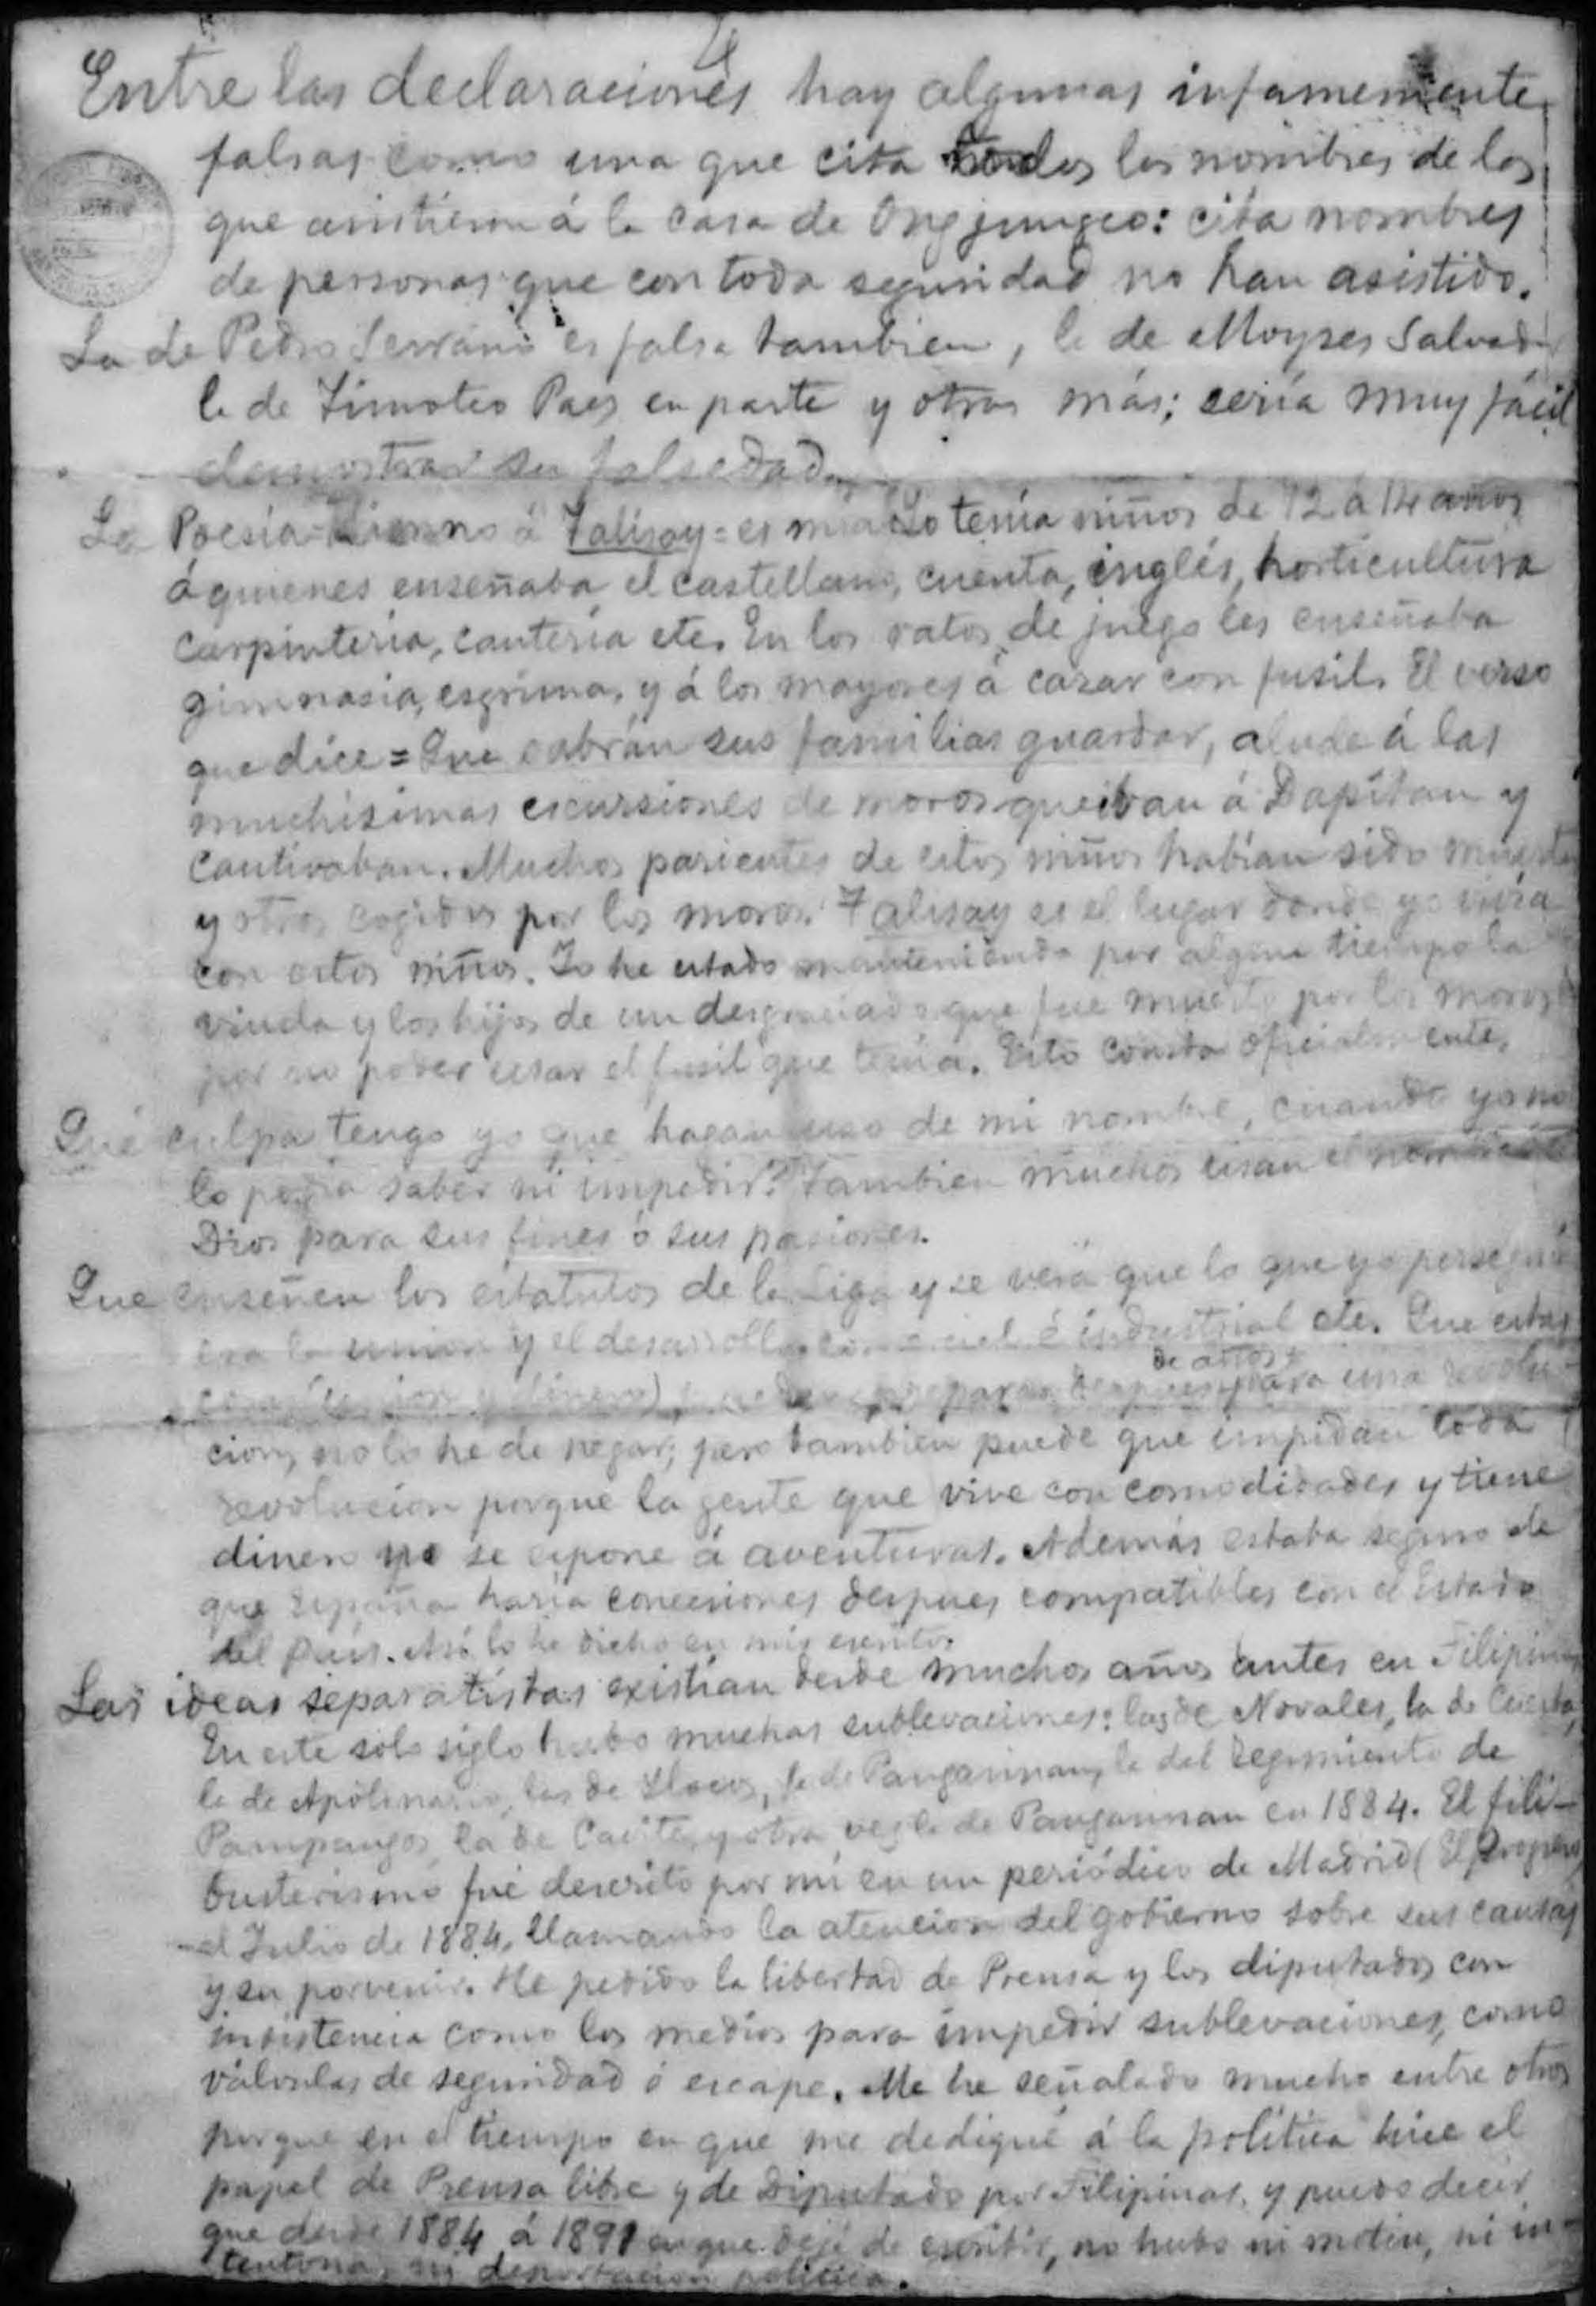 Entre las declaraciones hay algunas infamemente
falsas como una que cita todos los nombres de los
que asistieron á la casa de Ongjungco: cita nombres
de personas que con toda seguridad no han asistido.
La de Pedro Serrano es falsa tambien, la de Moyses Salvador
la de Timoteo Paez en parte y otras más; sería muy fácil
demostrar su falsedad.
La Poesía Himno á Talisay = es mía Yo tenía niños de 12 á 14 años
á quienes enseñaba el castellano, cuenta, inglés, horticultura
carpintería, cantería etc. En los ratos de juego les enseñaba
gimnasia, esgrima, y á los mayores á cazar con fusil. El verso
que dice = Que sabrán sus familias guardar, alude á las
muchísimas escursiones de moros que iban á Dapitan y
cautivaban. Muchos parientes de estos niños habían sido muertos
y otros cogidos por los moros. Talisay es el lugar donde yo vivía
con estos niños. Yo he estado manteniendo por algun tiempo la
viuda y los hijos de un desgraciado que fue muerto por los moros
por no poder usar el fusil que tenía. Esto consta oficialmente.
Qué culpa tengo yo que hagan uso de mi nombre, cuando yo no
lo podía saber ni impedir? Tambien muchos usan el nombre de
Dios para sus fines ó sus pasiones.
Que enseñen los estatutos de la Liga y se verá que lo que yo perseguía
era la union y el desarrollo comercial é industrial etc. Que estas
de años
cosas (union y dinero) preparar despues para una revolu-
cion, no lo he de negar; pero tambien puede que impidan toda
revolucion porque la gente que vive con comodidades y tiene
dinero no se espone á aventuras. Además estaba seguro de
que España haría concesiones despues compatibles con el Estado
del País. Así lo he dicho en mis escritos.
Las ideas separatistas existían desde muchos años antes en Filipinas
En este solo siglo hubo muchas sublevaciones: las de Novales, la de Cuesta,
la de Apolinario, las de Ilocos, la de Pangasinan, la del regimiento de
Pampangos, la de Cavite, y otra vez la de Pangasinan en 1884. El fili-
busterismo fué descrito por mí en un periódico de Madrid (El Progreso)
el Julio de 1884, llamando la atencion del gobierno sobre sus causas
y su porvenir. He pedido la libertad de Prensa y los diputados con
insistencia como los medios para impedir sublevaciones, como
válvulas de seguridad ó escape. Me he señalado mucho entre otros
porque en el tiempo en que me dediqué á la política hice el
papel de Prensa libre y de Diputado por Filipinas, y puedo decir
que desde 1884 á 1891 en que dejé de escribir, no hubo ni motin, ni in-
tentona, ni deportacion política.